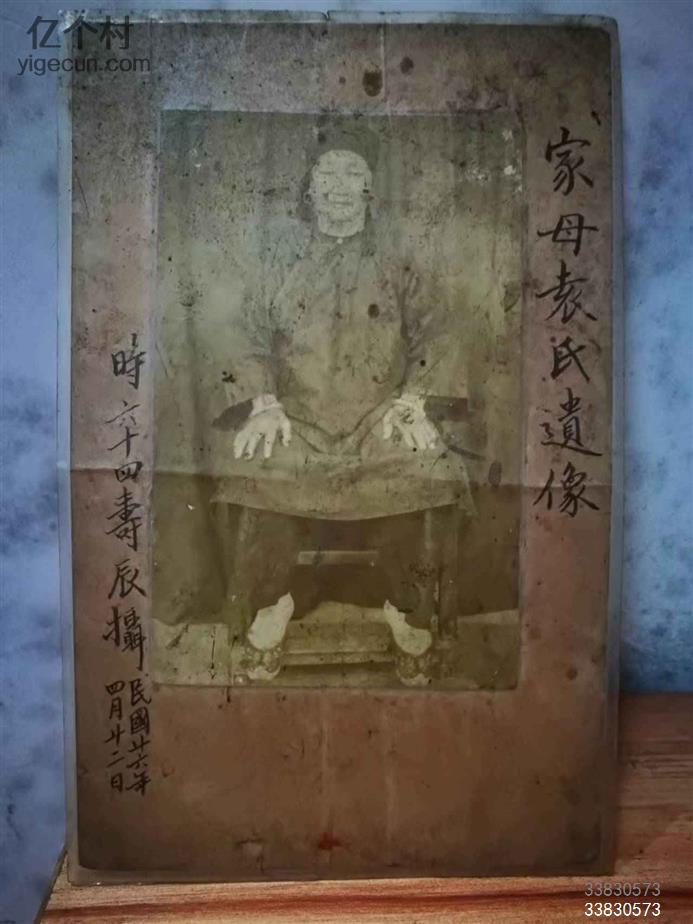 亿个村
yigecun.com
家母袁氏遺像
時六十四壽辰攝
民國廿六年
四月廿二日
33830573
33830573